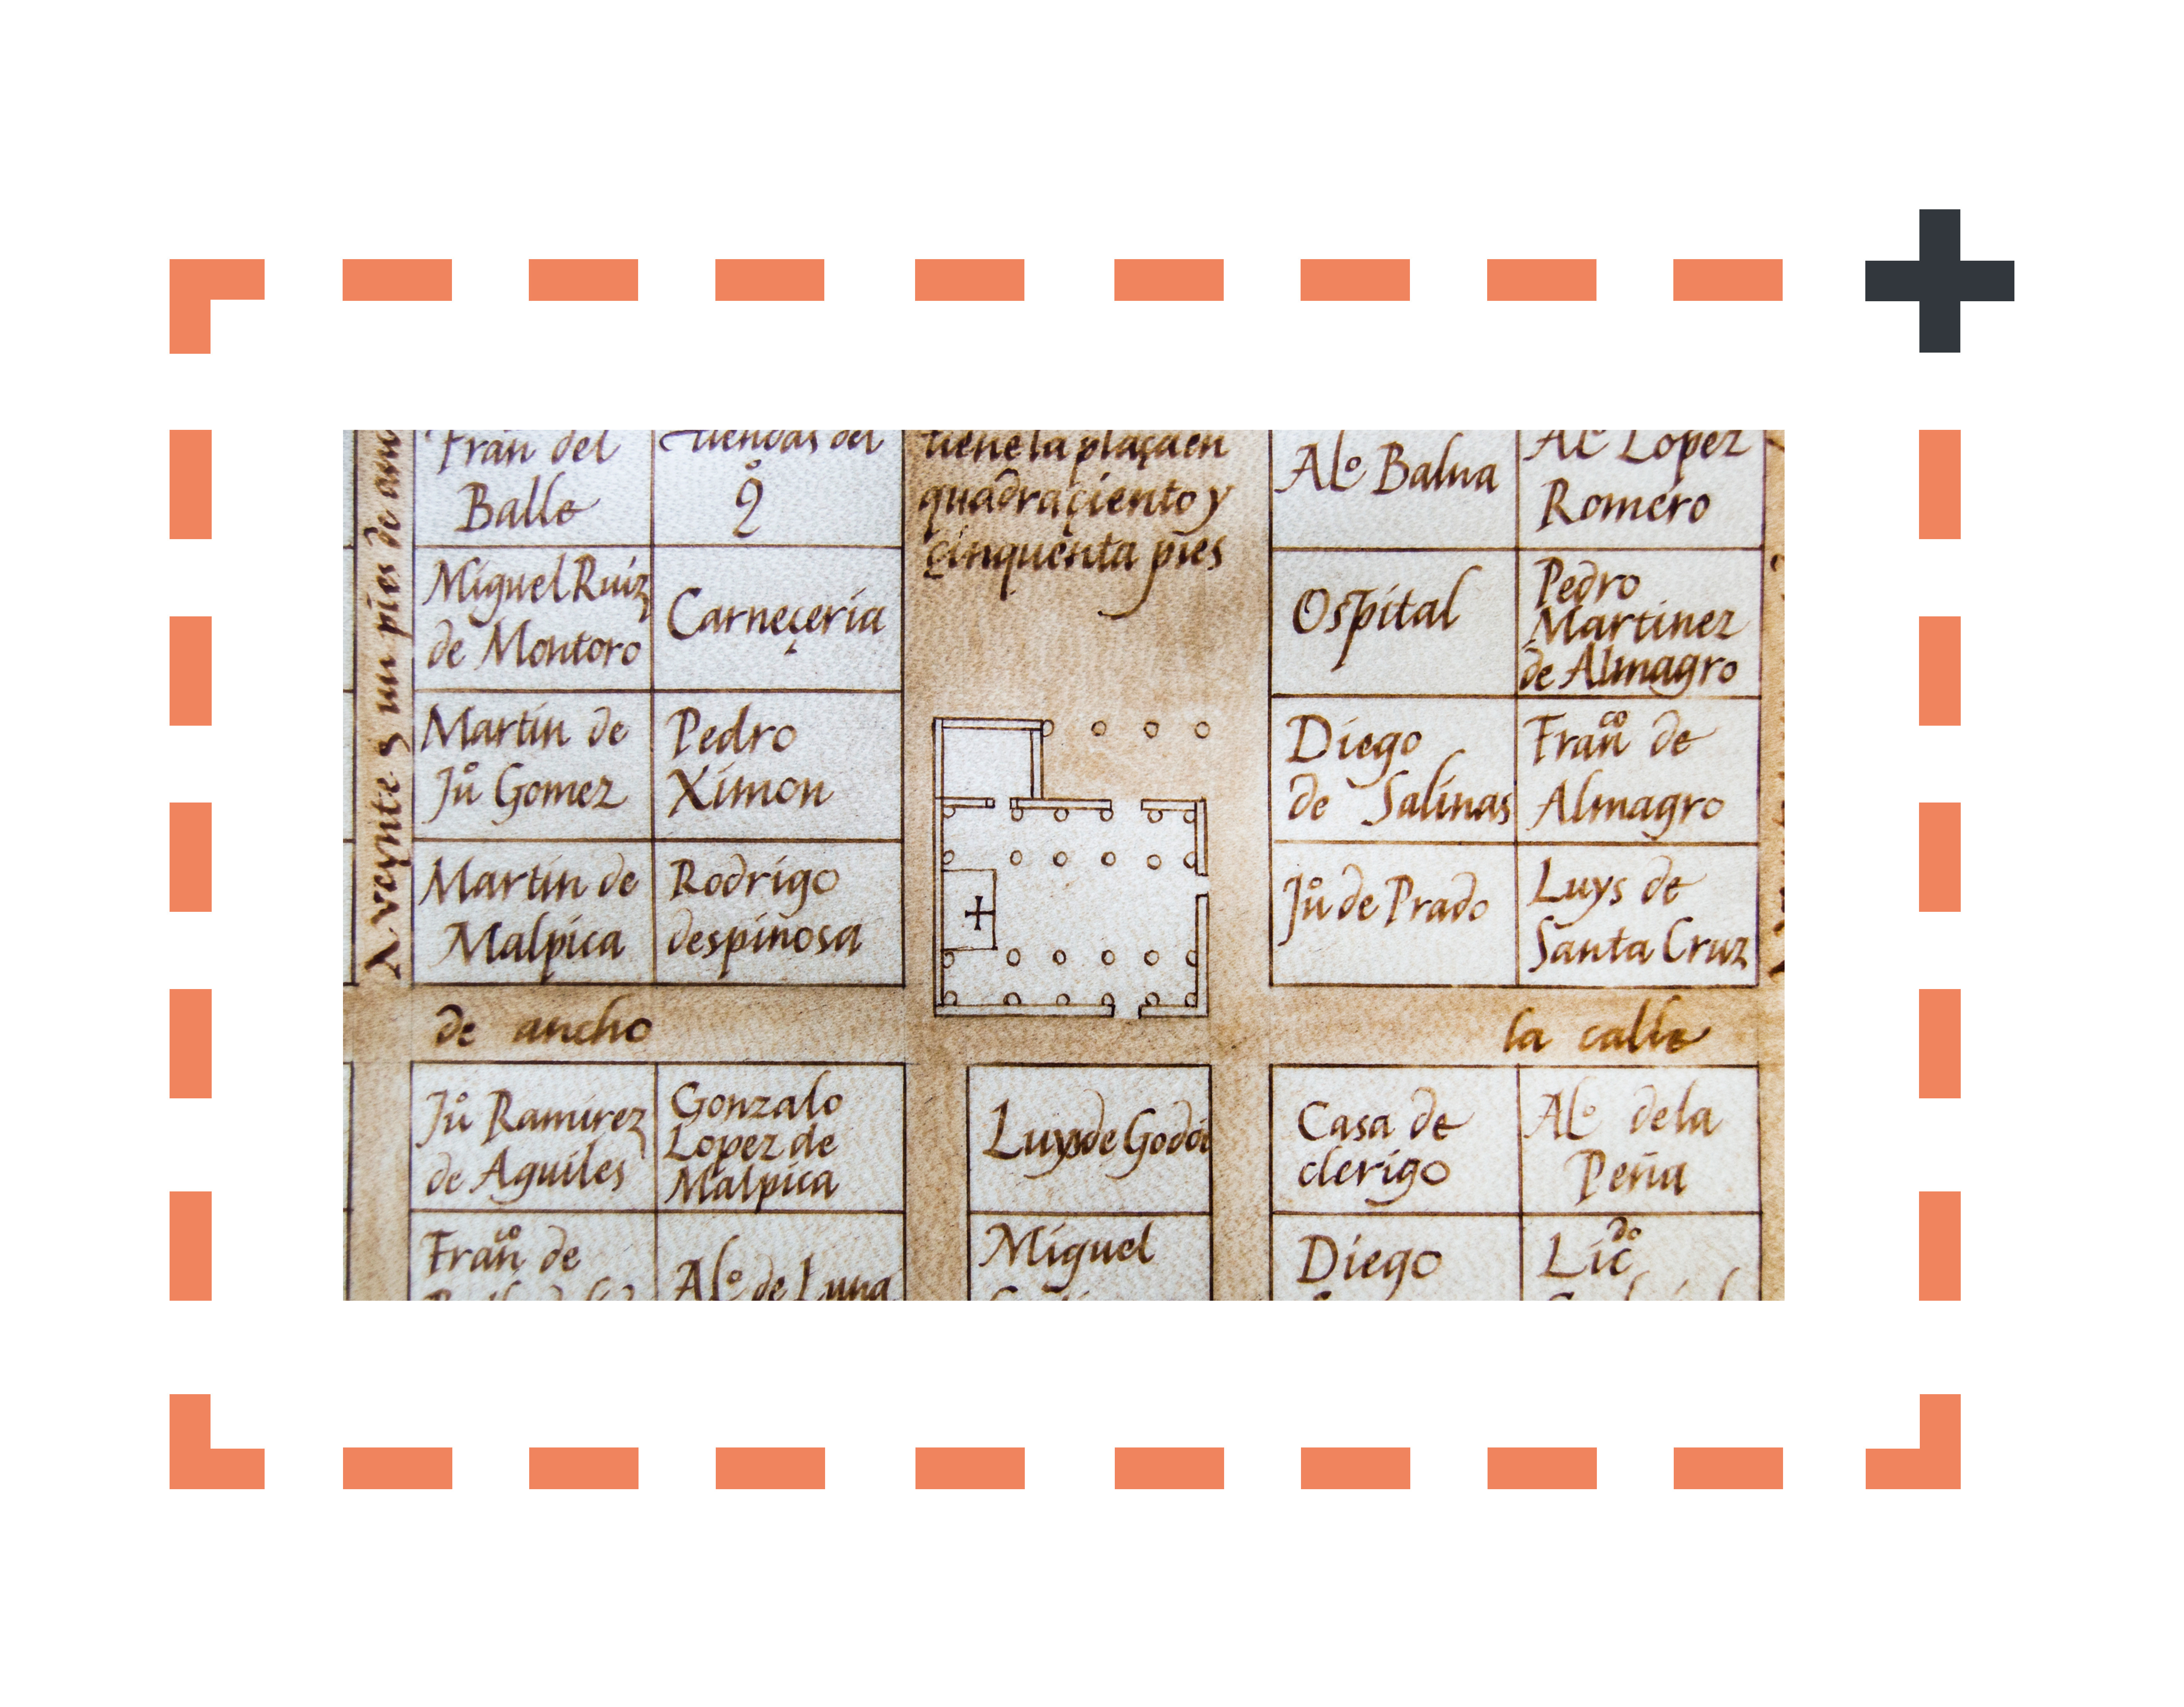 Fran del
Balle
tiendas del
tiene la plaça en
quadra çiento y
çinquenta pies
Alº Balua
Lopez
Romero
Miguel Ruiz
de Montoro
Carneçeria
Ospital
Pedro
Martinez
de Almagro
Martin de
Juº Gomez
Pedro
Ximon
Diego
de Salinas
Franco de
Almagro
Martin de
Malpica
Rodrigo
despinosa
Juº de Prado
Luys de
Santa Cruz
A veynte y un pies de
de ancho
la calle
Juº Ramirez
de Aguiles
Gonzalo
Lopez de
Malpica
Luys de Godoi
Casa de
clerigo
Alº de la
Peña
Franco de
Alº de Luna
Miguel
Diego
Licdo